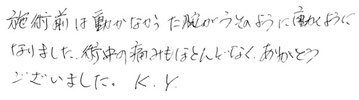 施術前は動かなかった腕がうそのように動くように
なりました。術中の痛みもほとんどなく、ありがとう
ございました。 K.Y.